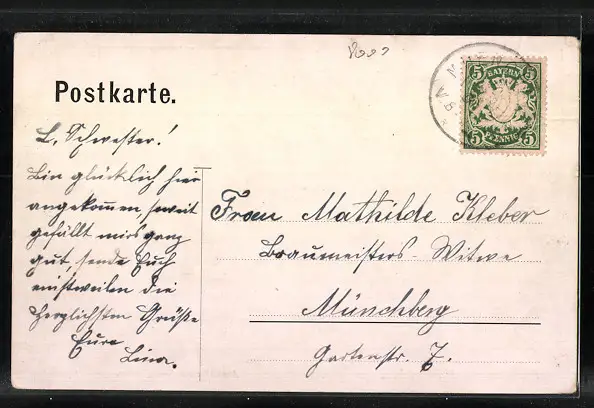 Postkarte.
BAYERN
5 5
PFENNIG
5 5
L. Schwester!
Bin glücklich hier
angekommen, soweit
gefällt mirs ganz
gut, sende Euch
einstweilen die
herzlichsten Grüße
Eure
Luise.
Frau Mathilde Kleber
Braumeisters-Witwe
Münchberg
Gartenstr. 7.